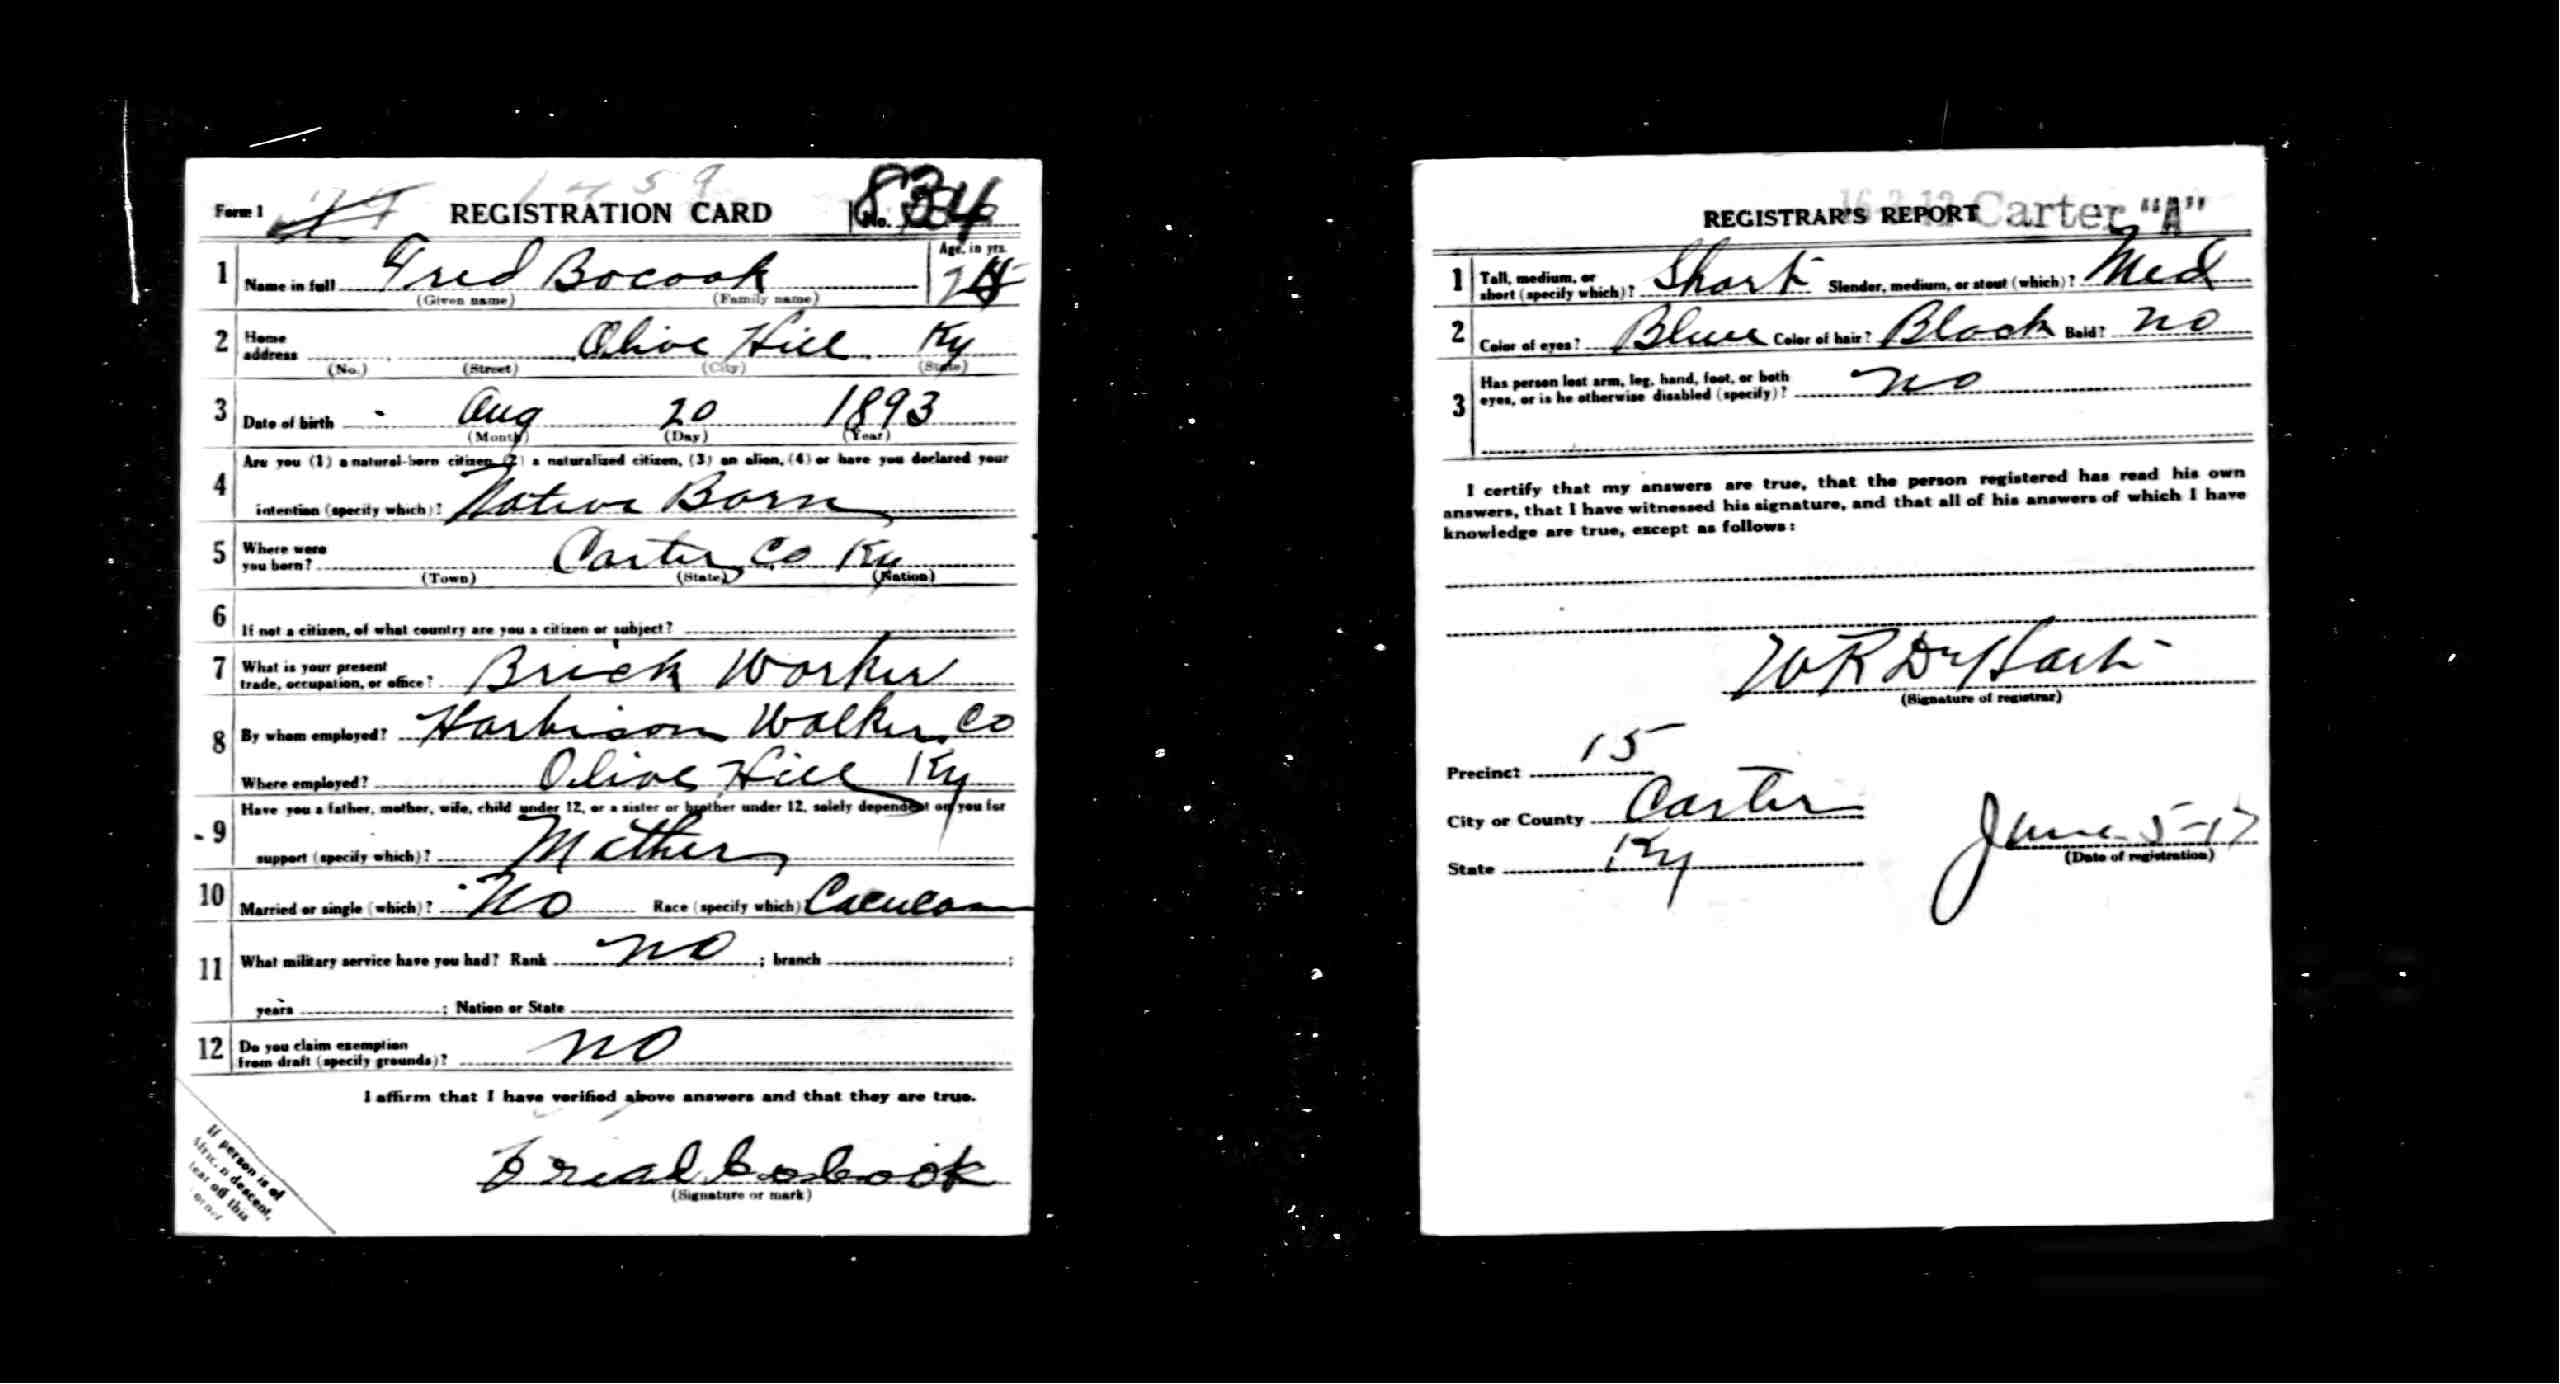 Form 1 REGISTRATION CARD No. 834
1 Name in full Fred Bocook Age, in yrs.
(Given name) (Family name)
2 Home address Olive Hill Ky
(No.) (Street) (City) (State)
3 Date of birth Aug 20 1893
(Month) (Day) (Year)
4 Are you (1) a natural-born citizen, (2) a naturalized citizen, (3) an alien, (4) or have you declared your
intention (specify which)? Native Born
5 Where were you born? Carter Co Ky
(Town) (State) (Nation)
6 If not a citizen, of what country are you a citizen or subject?
7 What is your present trade, occupation, or office? Brick Worker
8 By whom employed? Harbison Walker Co
Where employed? Olive Hill Ky
9 Have you a father, mother, wife, child under 12, or a sister or brother under 12, solely dependent on you for
support (specify which)? Mother
10 Married or single (which)? No Race (specify which)
11 What military service have you had? Rank no ; branch ;
years ; Nation or State
12 Do you claim exemption from draft (specify grounds)? no
I affirm that I have verified above answers and that they are true.
(Signature or mark)
If person is of
African descent,
tear off this
corner
REGISTRAR'S REPORT Carter "A"
1 Tall, medium, or short (specify which)? Short Slender, medium, or stout (which)? Med
2 Color of eyes? Blue Color of hair? Black Bald? no
3 Has person lost arm, leg, hand, foot, or both eyes, or is he otherwise disabled (specify)? no
I certify that my answers are true, that the person registered has read his own
answers, that I have witnessed his signature, and that all of his answers of which I have
knowledge are true, except as follows:
W R DeHart
(Signature of registrar)
Precinct 15
City or County Carter
State Ky
June 5-17
(Date of registration)